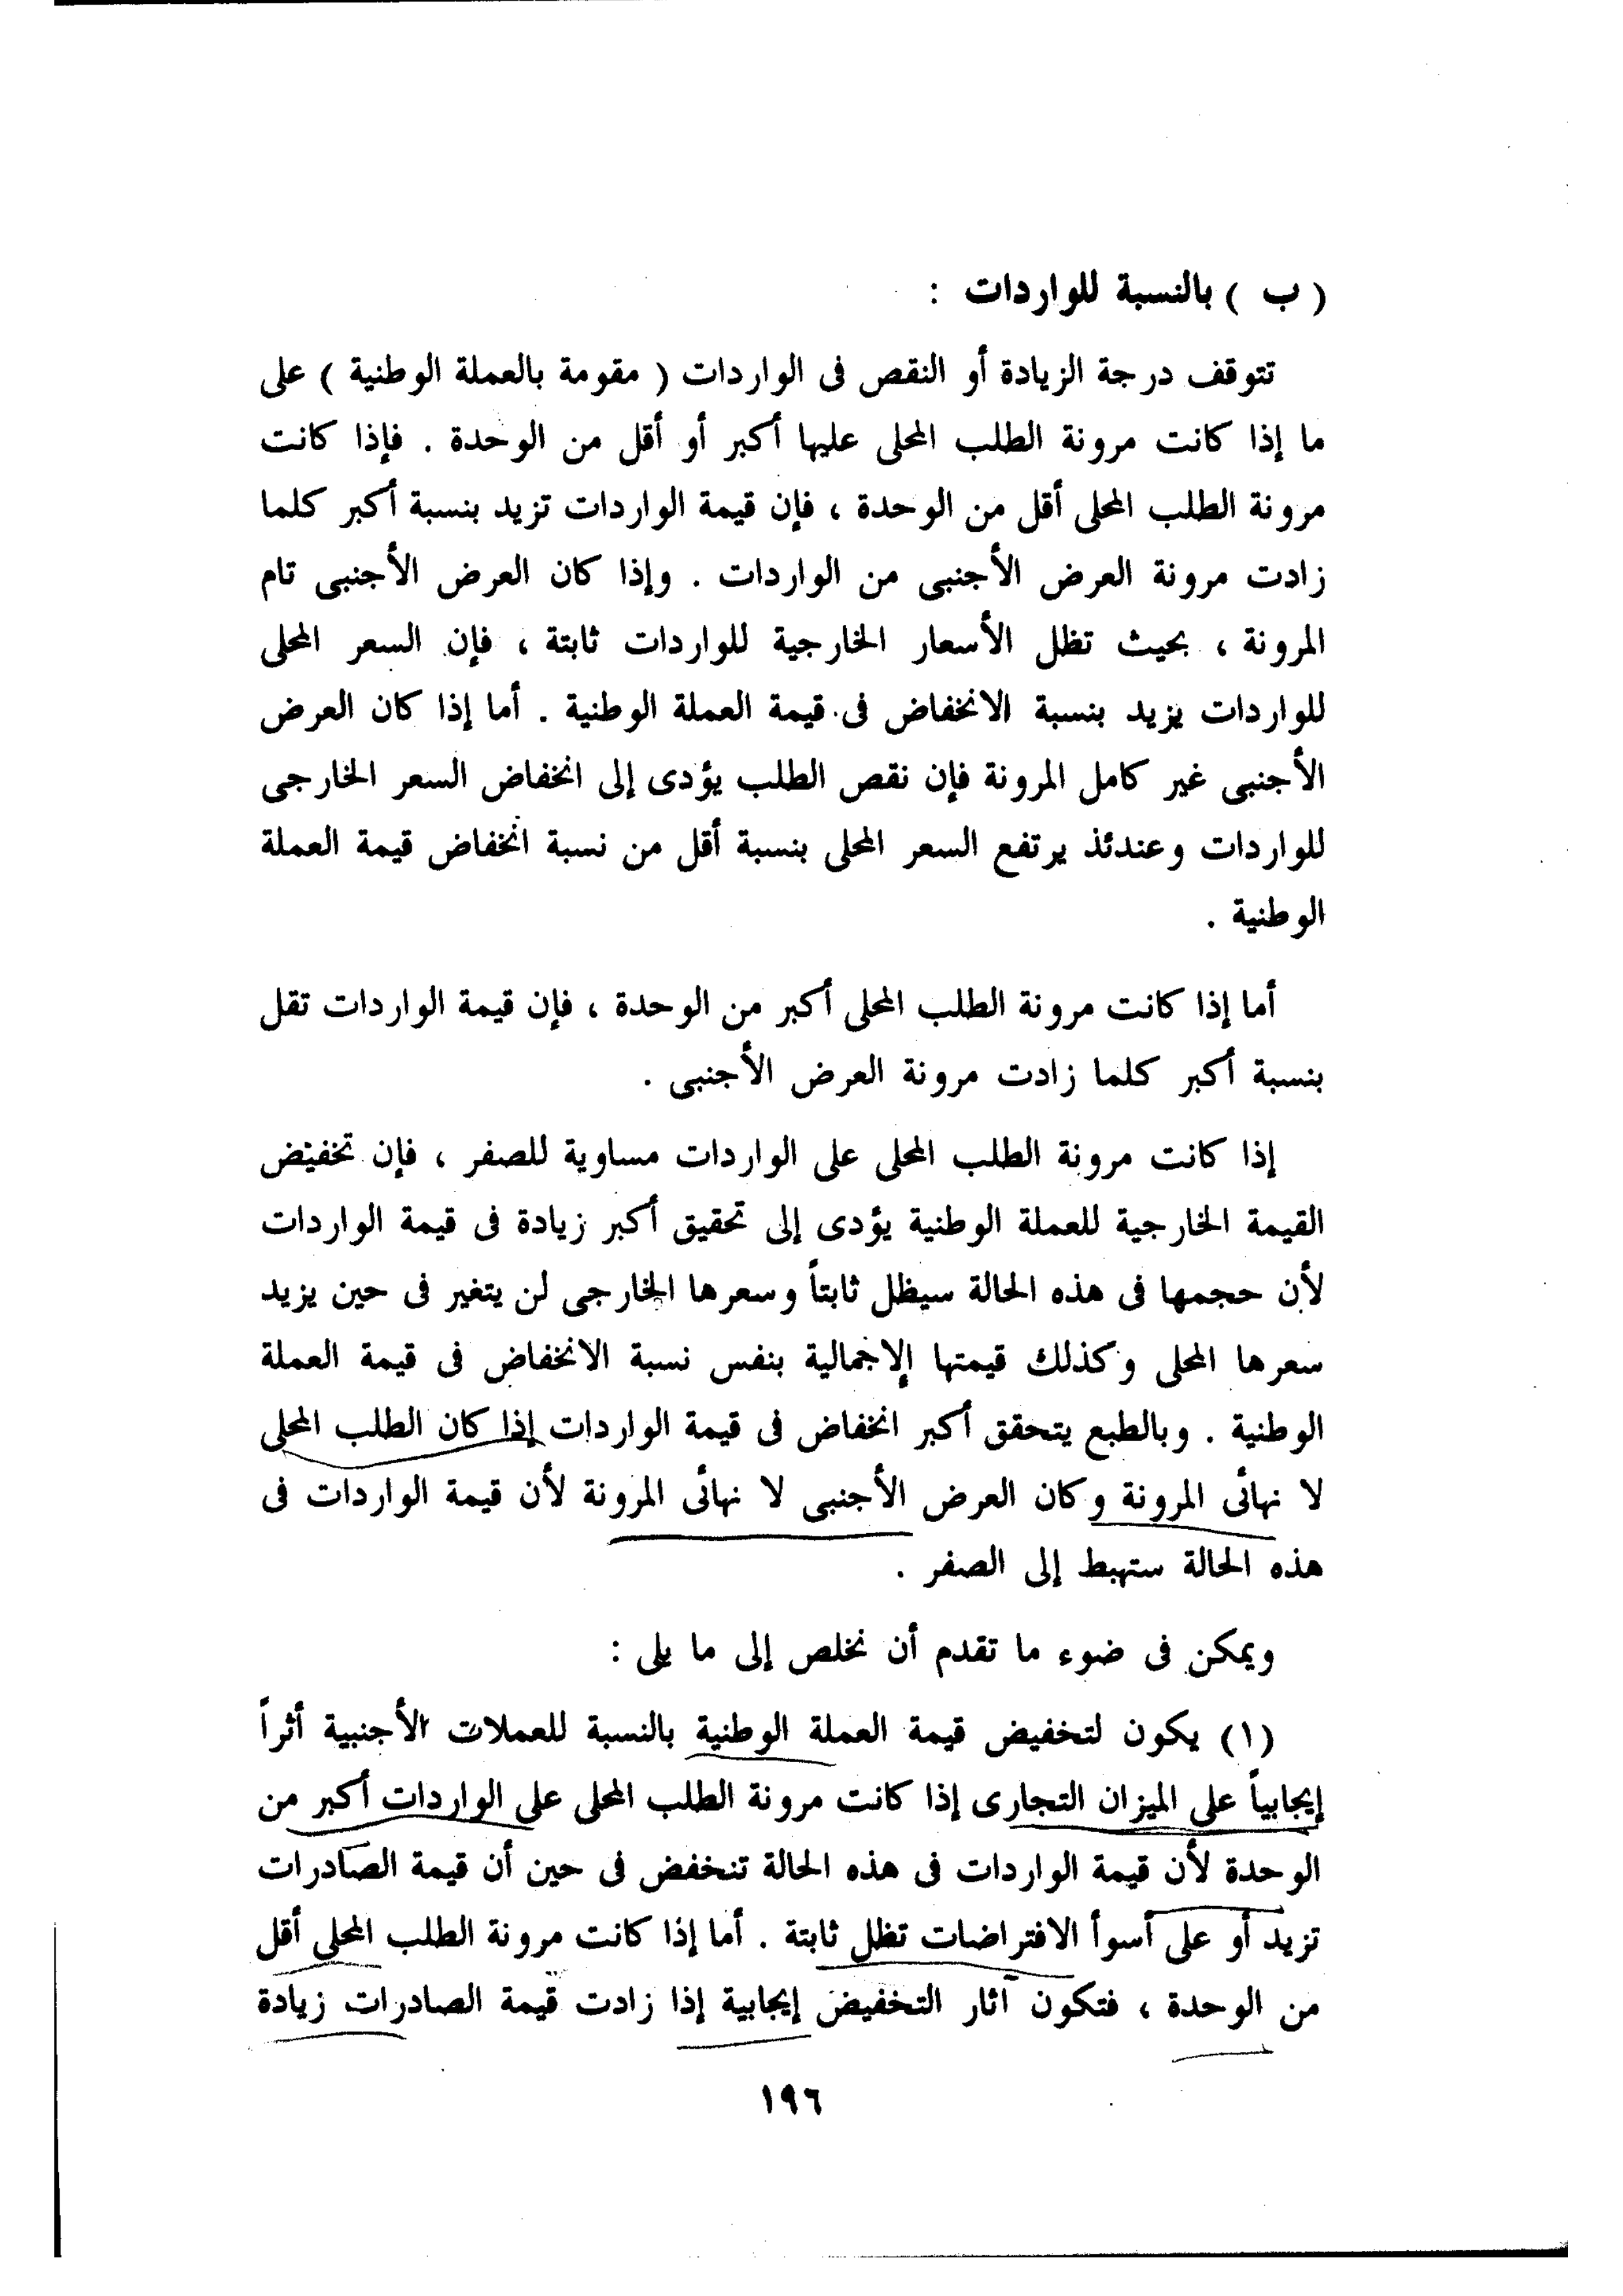 ( ب ) بالنسبة للواردات :
تتوقف درجة الزيادة أو النقص فى الواردات ( مقومة بالعملة الوطنية ) على
ما إذا كانت مرونة الطلب المحلى عليها أكبر أو أقل من الوحدة . فإذا كانت
مرونة الطلب المحلى أقل من الوحدة ، فإن قيمة الواردات تزيد بنسبة أكبر كلما
زادت مرونة العرض الأجنبى من الواردات . وإذا كان العرض الأجنبى تام
المرونة ، بحيث تظل الأسعار الخارجية للواردات ثابتة ، فإن السعر المحلى
للواردات يزيد بنسبة الانخفاض فى قيمة العملة الوطنية . أما إذا كان العرض
الأجنبى غير كامل المرونة فإن نقص الطلب يؤدى إلى انخفاض السعر الخارجى
للواردات وعندئذ يرتفع السعر المحلى بنسبة أقل من نسبة انخفاض قيمة العملة
الوطنية .
أما إذا كانت مرونة الطلب المحلى أكبر من الوحدة ، فإن قيمة الواردات تقل
بنسبة أكبر كلما زادت مرونة العرض الأجنبى .
إذا كانت مرونة الطلب المحلى على الواردات مساوية للصفر ، فإن تخفيض
القيمة الخارجية للعملة الوطنية يؤدى إلى تحقيق أكبر زيادة فى قيمة الواردات
لأن حجمها فى هذه الحالة سيظل ثابتاً وسعرها الخارجى لن يتغير فى حين يزيد
سعرها المحلى وكذلك قيمتها الإجمالية بنفس نسبة الانخفاض فى قيمة العملة
الوطنية . وبالطبع يتحقق أكبر انخفاض فى قيمة الواردات إذا كان الطلب المحلى
لا نهائى المرونة وكان العرض الأجنبى لا نهائى المرونة لأن قيمة الواردات فى
هذه الحالة ستهبط إلى الصفر .
ويمكن فى ضوء ما تقدم أن نخلص إلى ما يلى :
(١) يكون لتخفيض قيمة العملة الوطنية بالنسبة للعملات الأجنبية أثراً
إيجابياً على الميزان التجارى إذا كانت مرونة الطلب المحلى على الواردات أكبر من
الوحدة لأن قيمة الواردات فى هذه الحالة تنخفض فى حين أن قيمة الصادرات
تزيد أو على أسوأ الافتراضات تظل ثابتة . أما إذا كانت مرونة الطلب المحلى أقل
من الوحدة ، فتكون آثار التخفيض إيجابية إذا زادت قيمة الصادرات زيادة
١٩٦